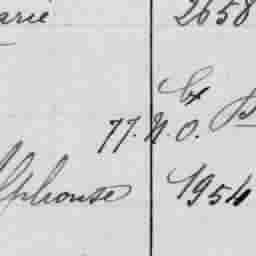 arie 2658
77. N. O.
Alphonse 1954